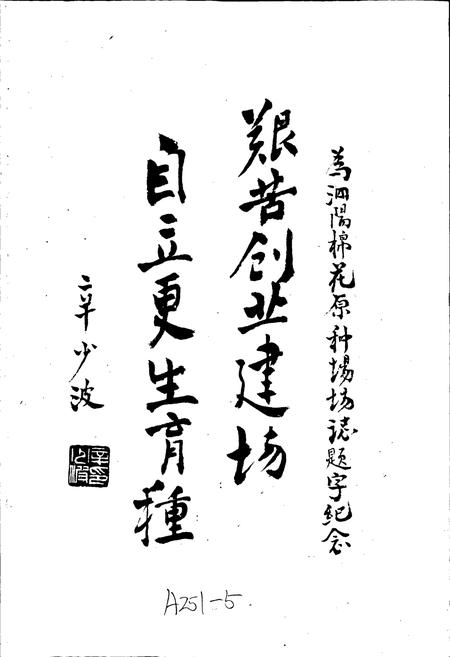 為泗陽棉花原种場场誌題字紀念
艱苦创业建场
自立更生育種
辛少波
辛少波印
A251-5